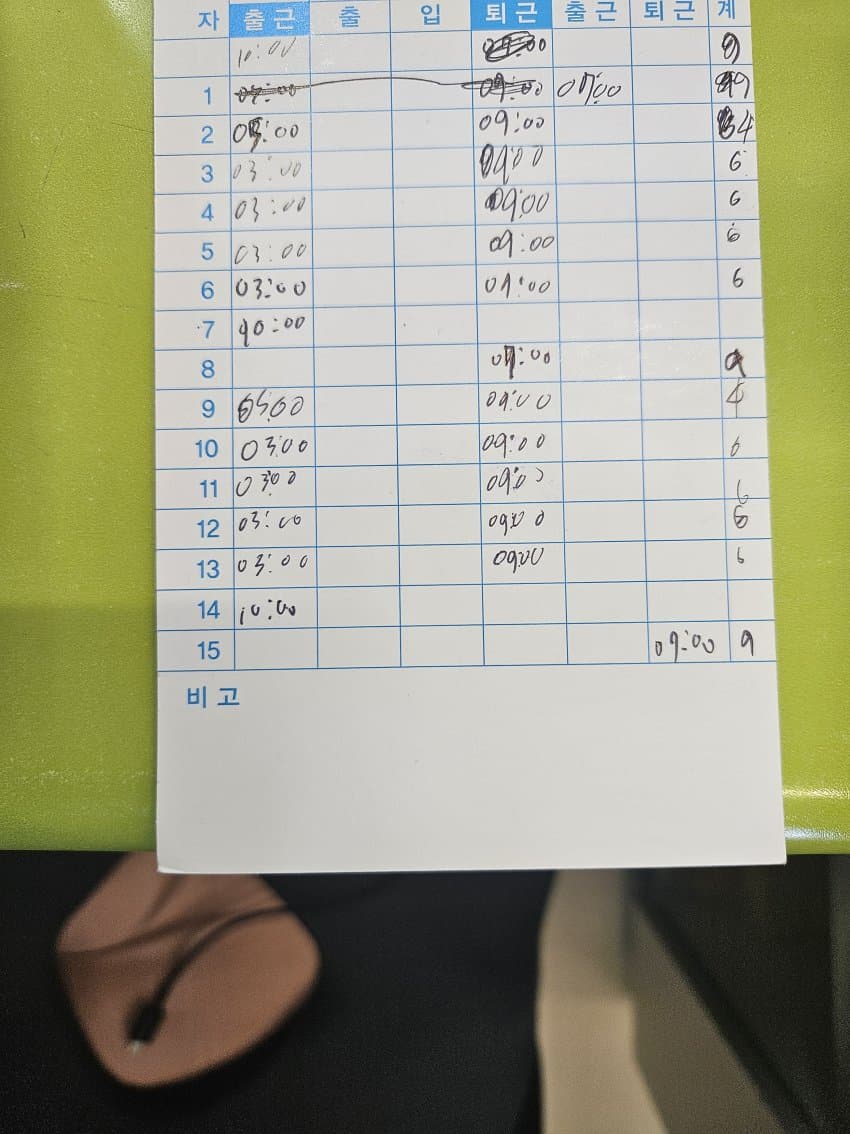 자 출근 출 입 퇴근 출근 퇴근 계
10:00 9
1 07:00 9
2 05:00 09:00 4
3 03:00 09:00 6
4 03:00 09:00 6
5 03:00 09:00 6
6 03:00 09:00 6
7 10:00
8 07:00 9
9 05:00 09:00 4
10 03:00 09:00 6
11 03:00 09:00 6
12 03:00 09:00 6
13 03:00 09:00 6
14 10:00
15 07:00 9
비고